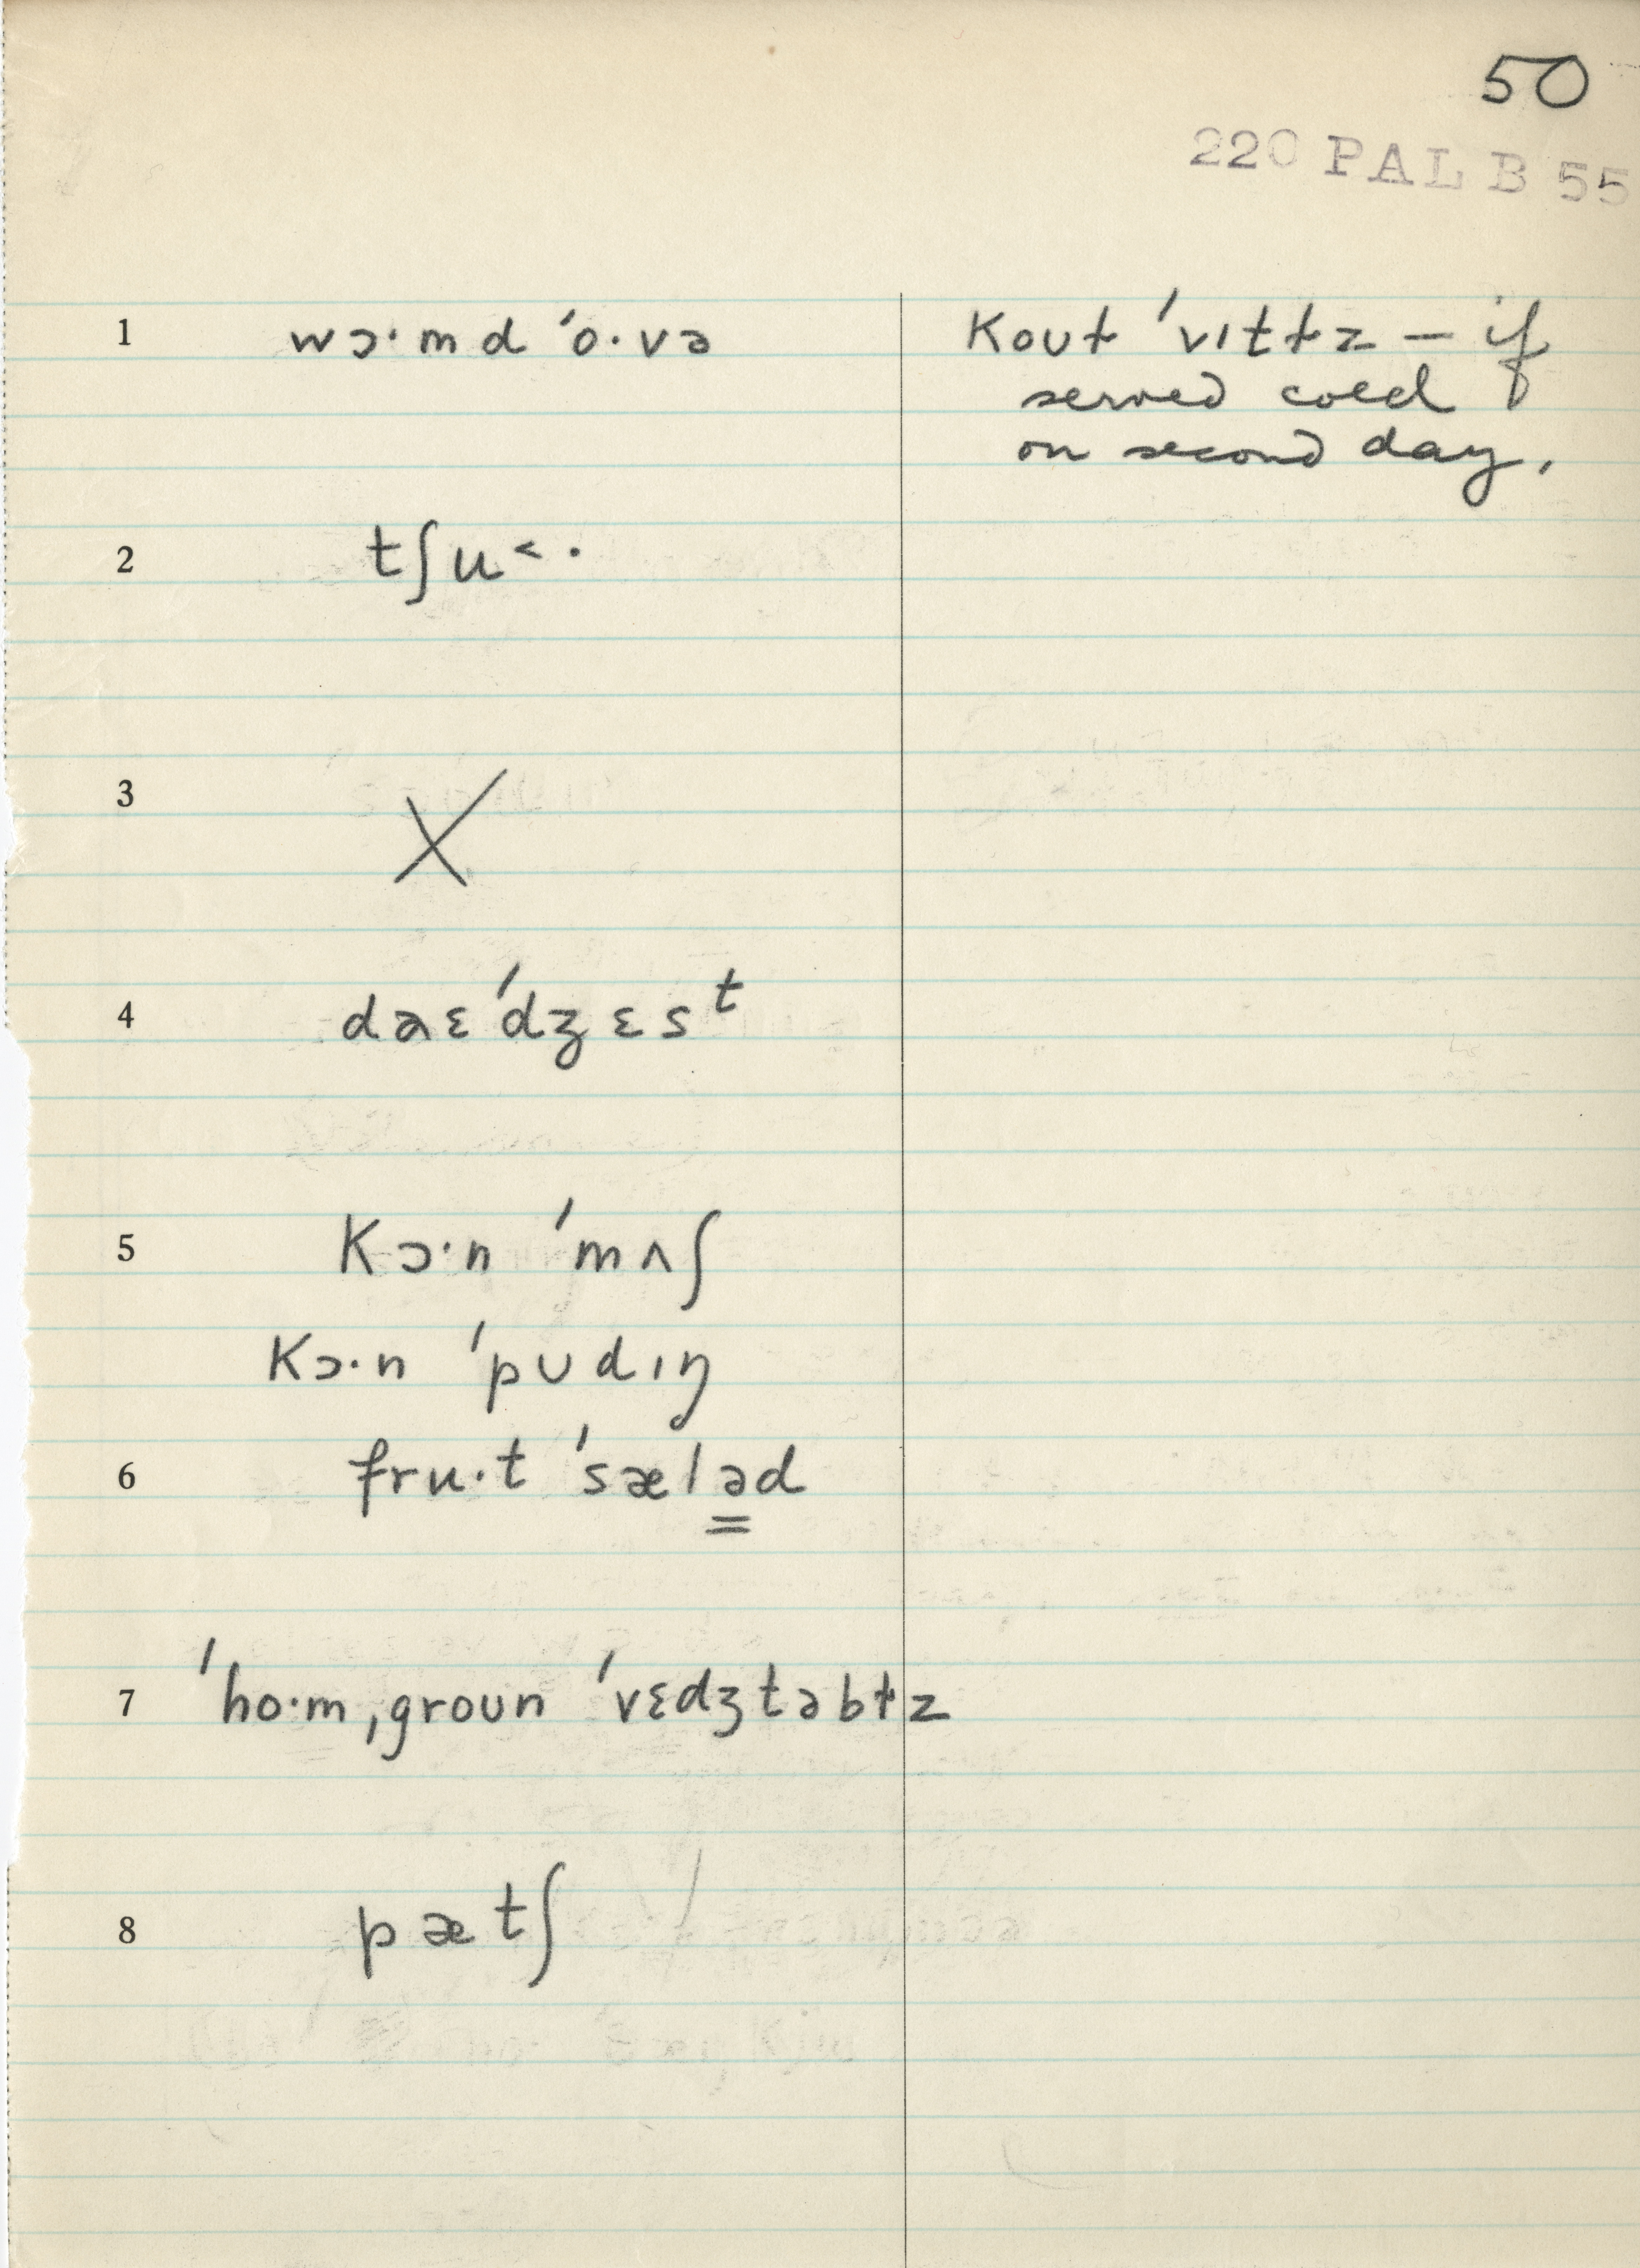 50
220 PAL B 55
1 wɔ·md ˈo·və
koʊɫ ˈvɪtɫz — if
served cold
on second day.
2 tʃu˂·
3 X
4 daɛˈdʒɛsᵗ
5 kɔ·n ˈmʌʃ
kɔ·n ˈpʊdɪŋ
6 fru·t ˈsæləd
7 ˈho·mˌgroʊn ˈvɛdʒtəbɫz
8 pætʃ